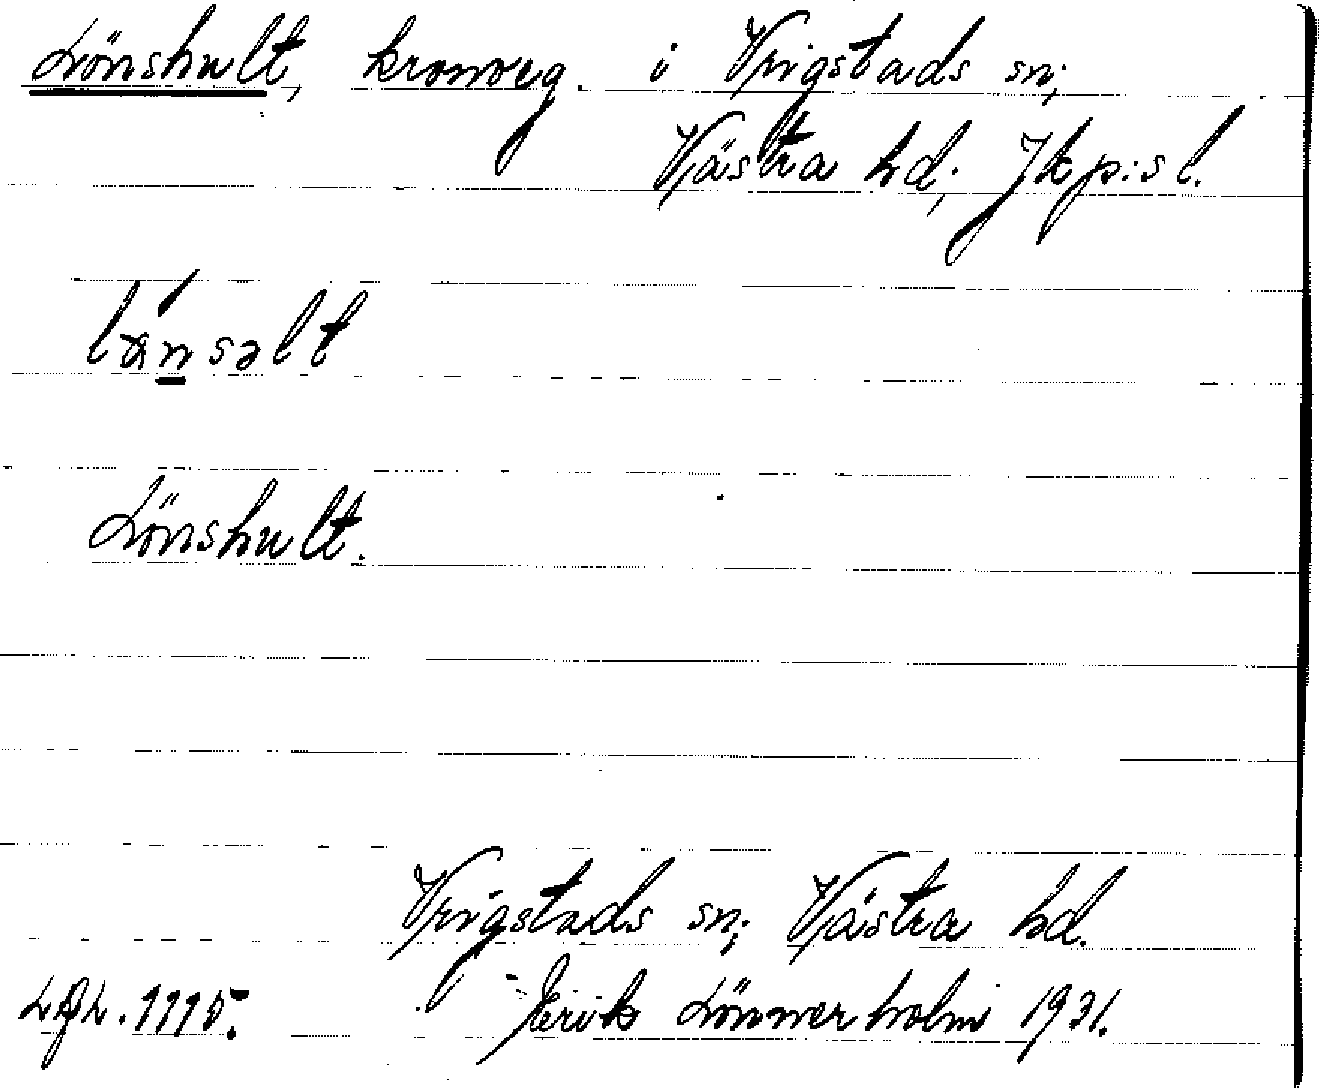 Lönshult, kronoeg. i Vrigstads sn;
Västra hd; Jkp:s l.
Lönshult.
Vrigstads sn; Västra hd.
Erik Lönnerholm 1931.